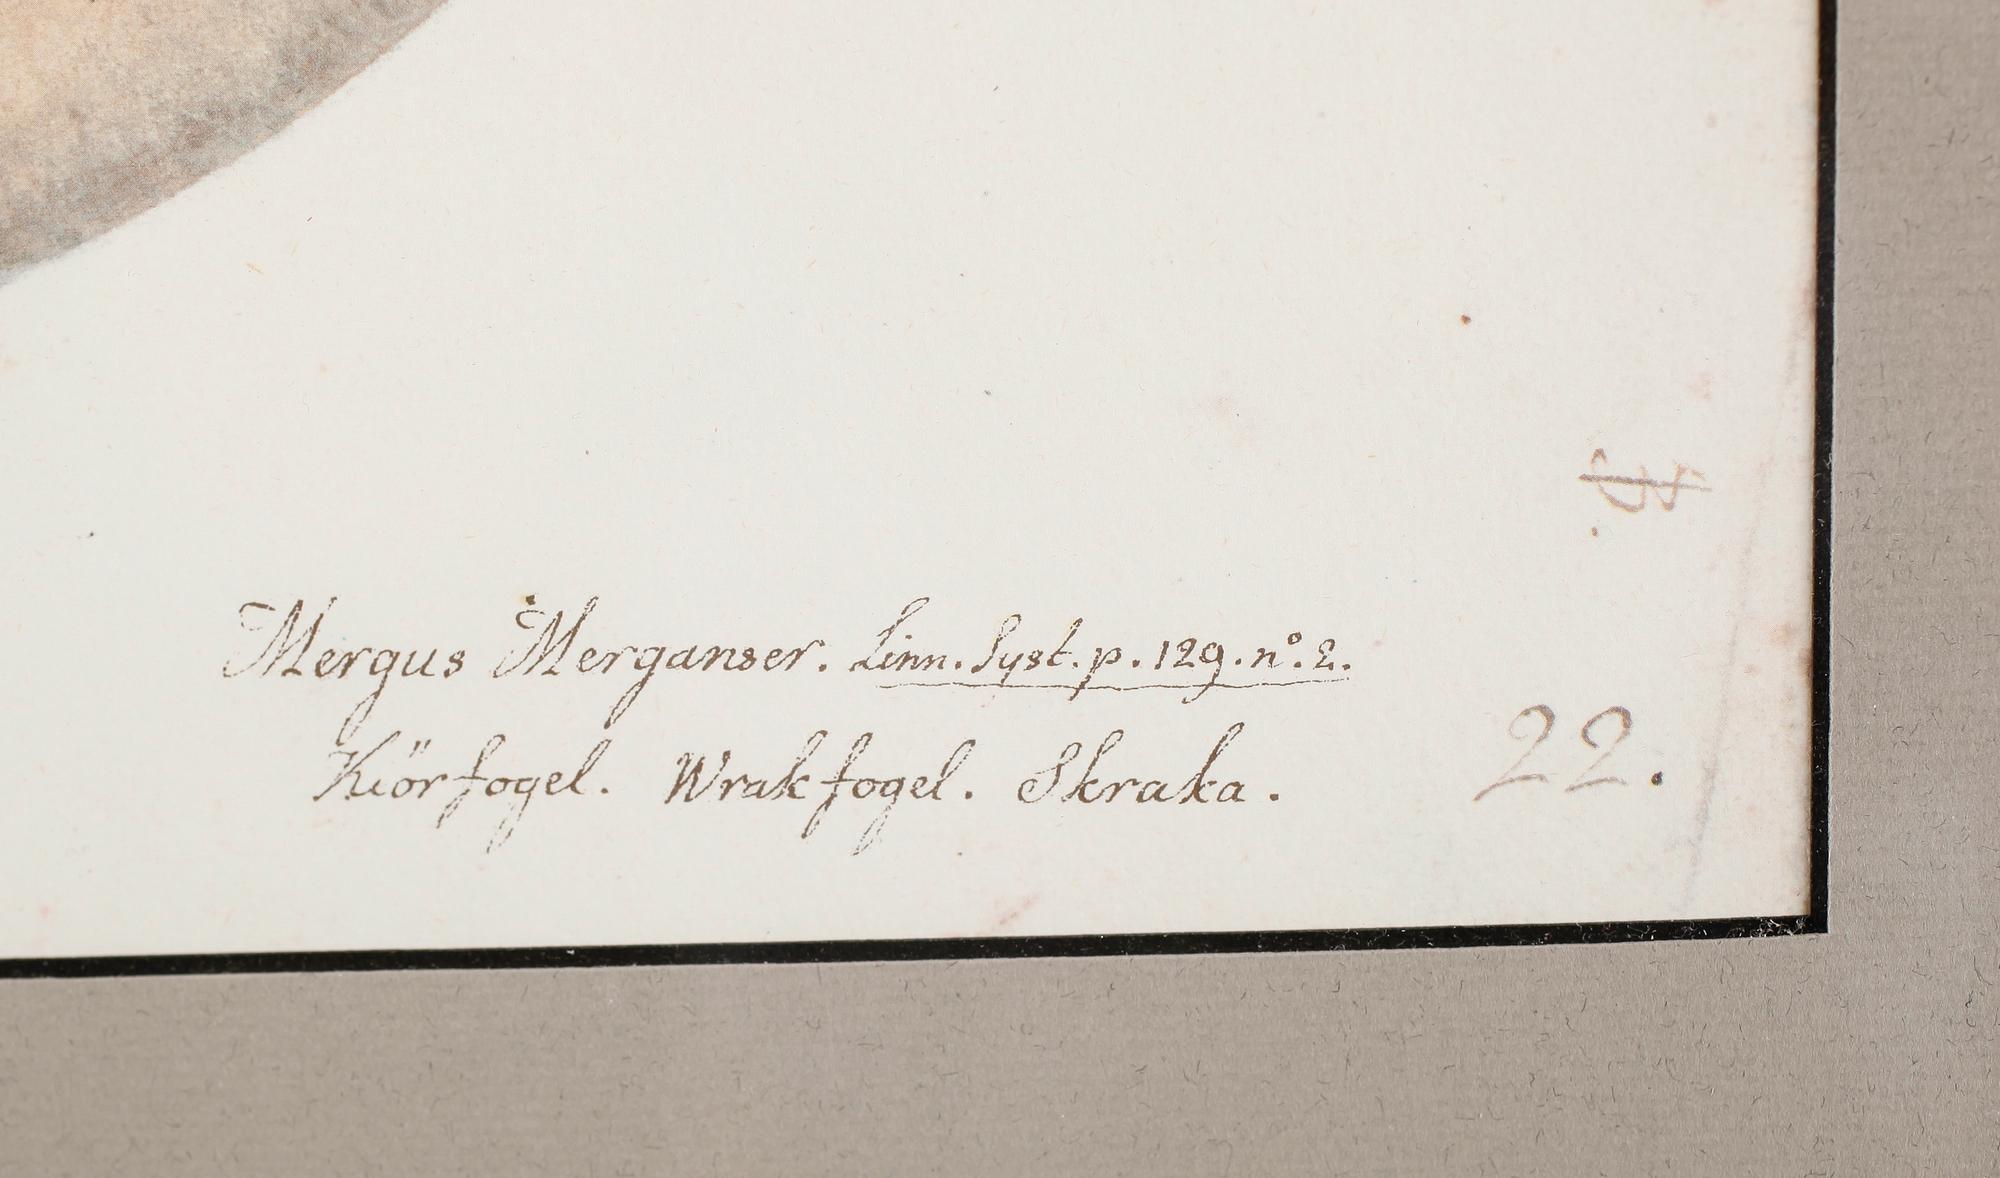 Mergus Merganser. Linn. Syst. p. 129. nº. 2.
Kiörfogel. Wrakfogel. Skraka.
22.